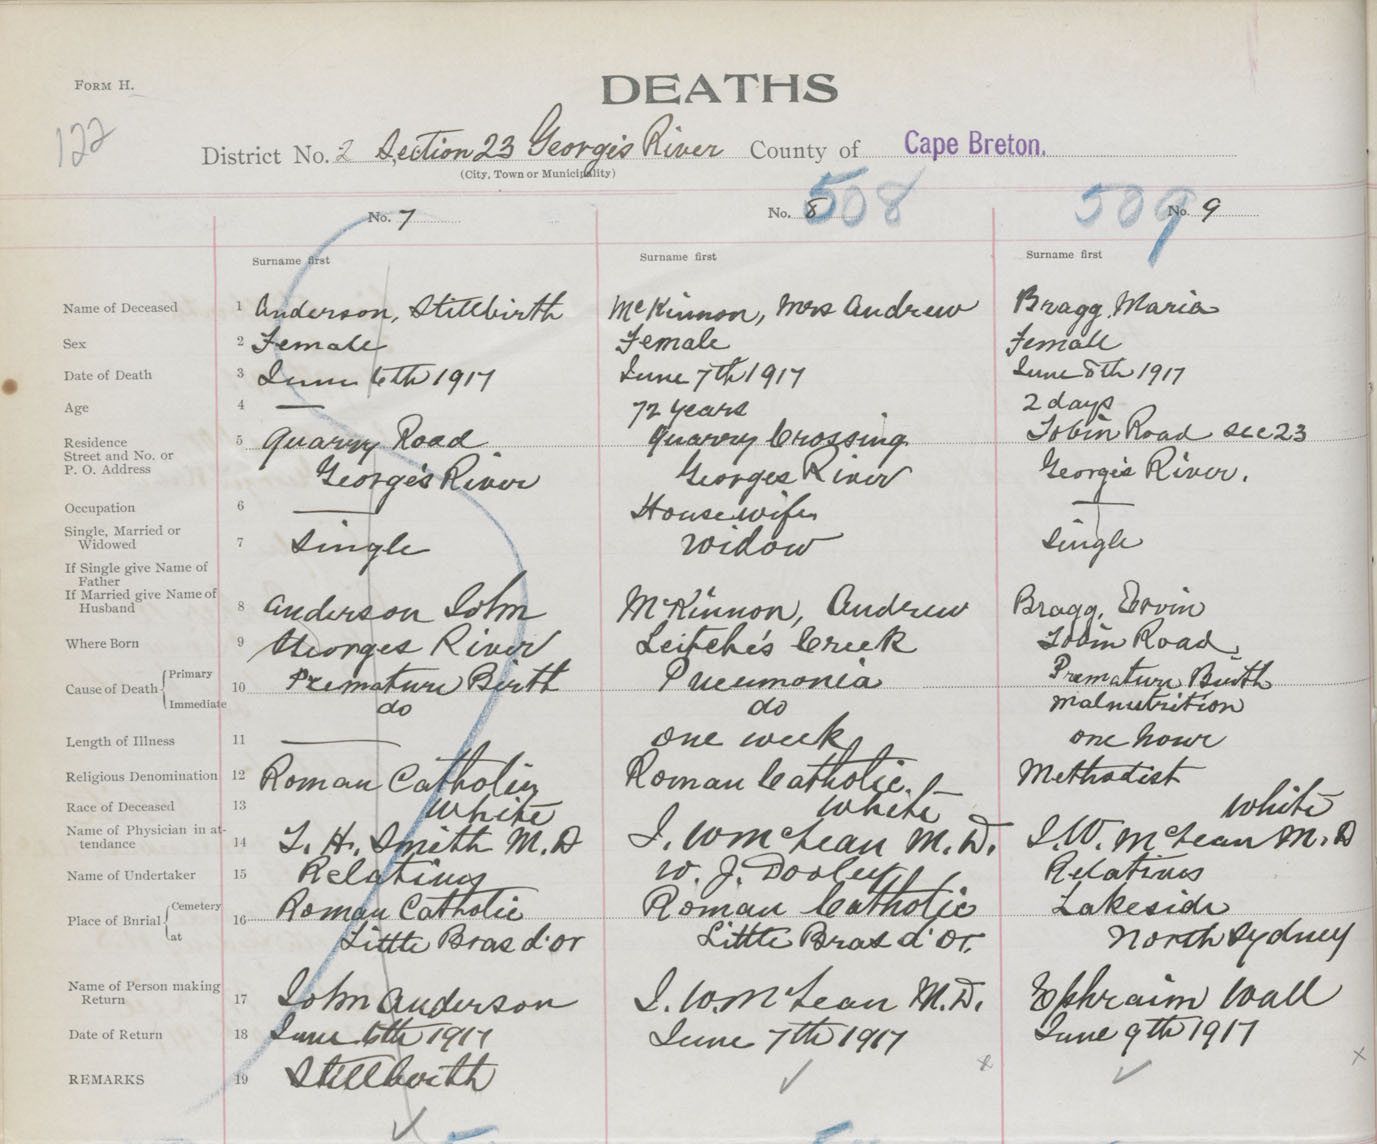 FORM H.
DEATHS
122
District No. 2 Section 23 Georges River County of Cape Breton.
(City, Town or Municipality)
508 509
No. 7 No. 8 No. 9
Surname first Surname first Surname first
Name of Deceased 1 Anderson, Stillbirth McKinnon, Mrs Andrew Bragg, Maria
Sex 2 Female Female Female
Date of Death 3 June 6th 1917 June 7th 1917 June 8th 1917
Age 4 — 72 years 2 days
Residence 5 Quarry Road Quarry Crossing Tobin Road Sec 23
Street and No. or
P. O. Address George's River Georges River George's River.
Occupation 6 — Housewife —
Single, Married or
Widowed 7 Single Widow Single
If Single give Name of
Father
If Married give Name of
Husband 8 Anderson John McKinnon, Andrew Bragg, Ervin
Where Born 9 Georges River Leitche's Creek Tobin Road,
Cause of Death Primary 10 Premature Birth Pneumonia Premature Birth
Immediate do do Malnutrition
Length of Illness 11 — one week one hour
Religious Denomination 12 Roman Catholic Roman Catholic. Methodist
Race of Deceased 13 White White White
Name of Physician in at-
tendance 14 L. H. Smith M.D J. W McLean M.D. J. W. McLean M.D
Name of Undertaker 15 Relatives W. J. Dooley Relatives
Place of Burial Cemetery 16 Roman Catholic Roman Catholic Lakeside
at Little Bras d'or Little Bras d'Or. North Sydney
Name of Person making
Return 17 John Anderson J. W. McLean M.D. Ephraim Wall
Date of Return 18 June 6th 1917 June 7th 1917 June 9th 1917
REMARKS 19 Stillbirth